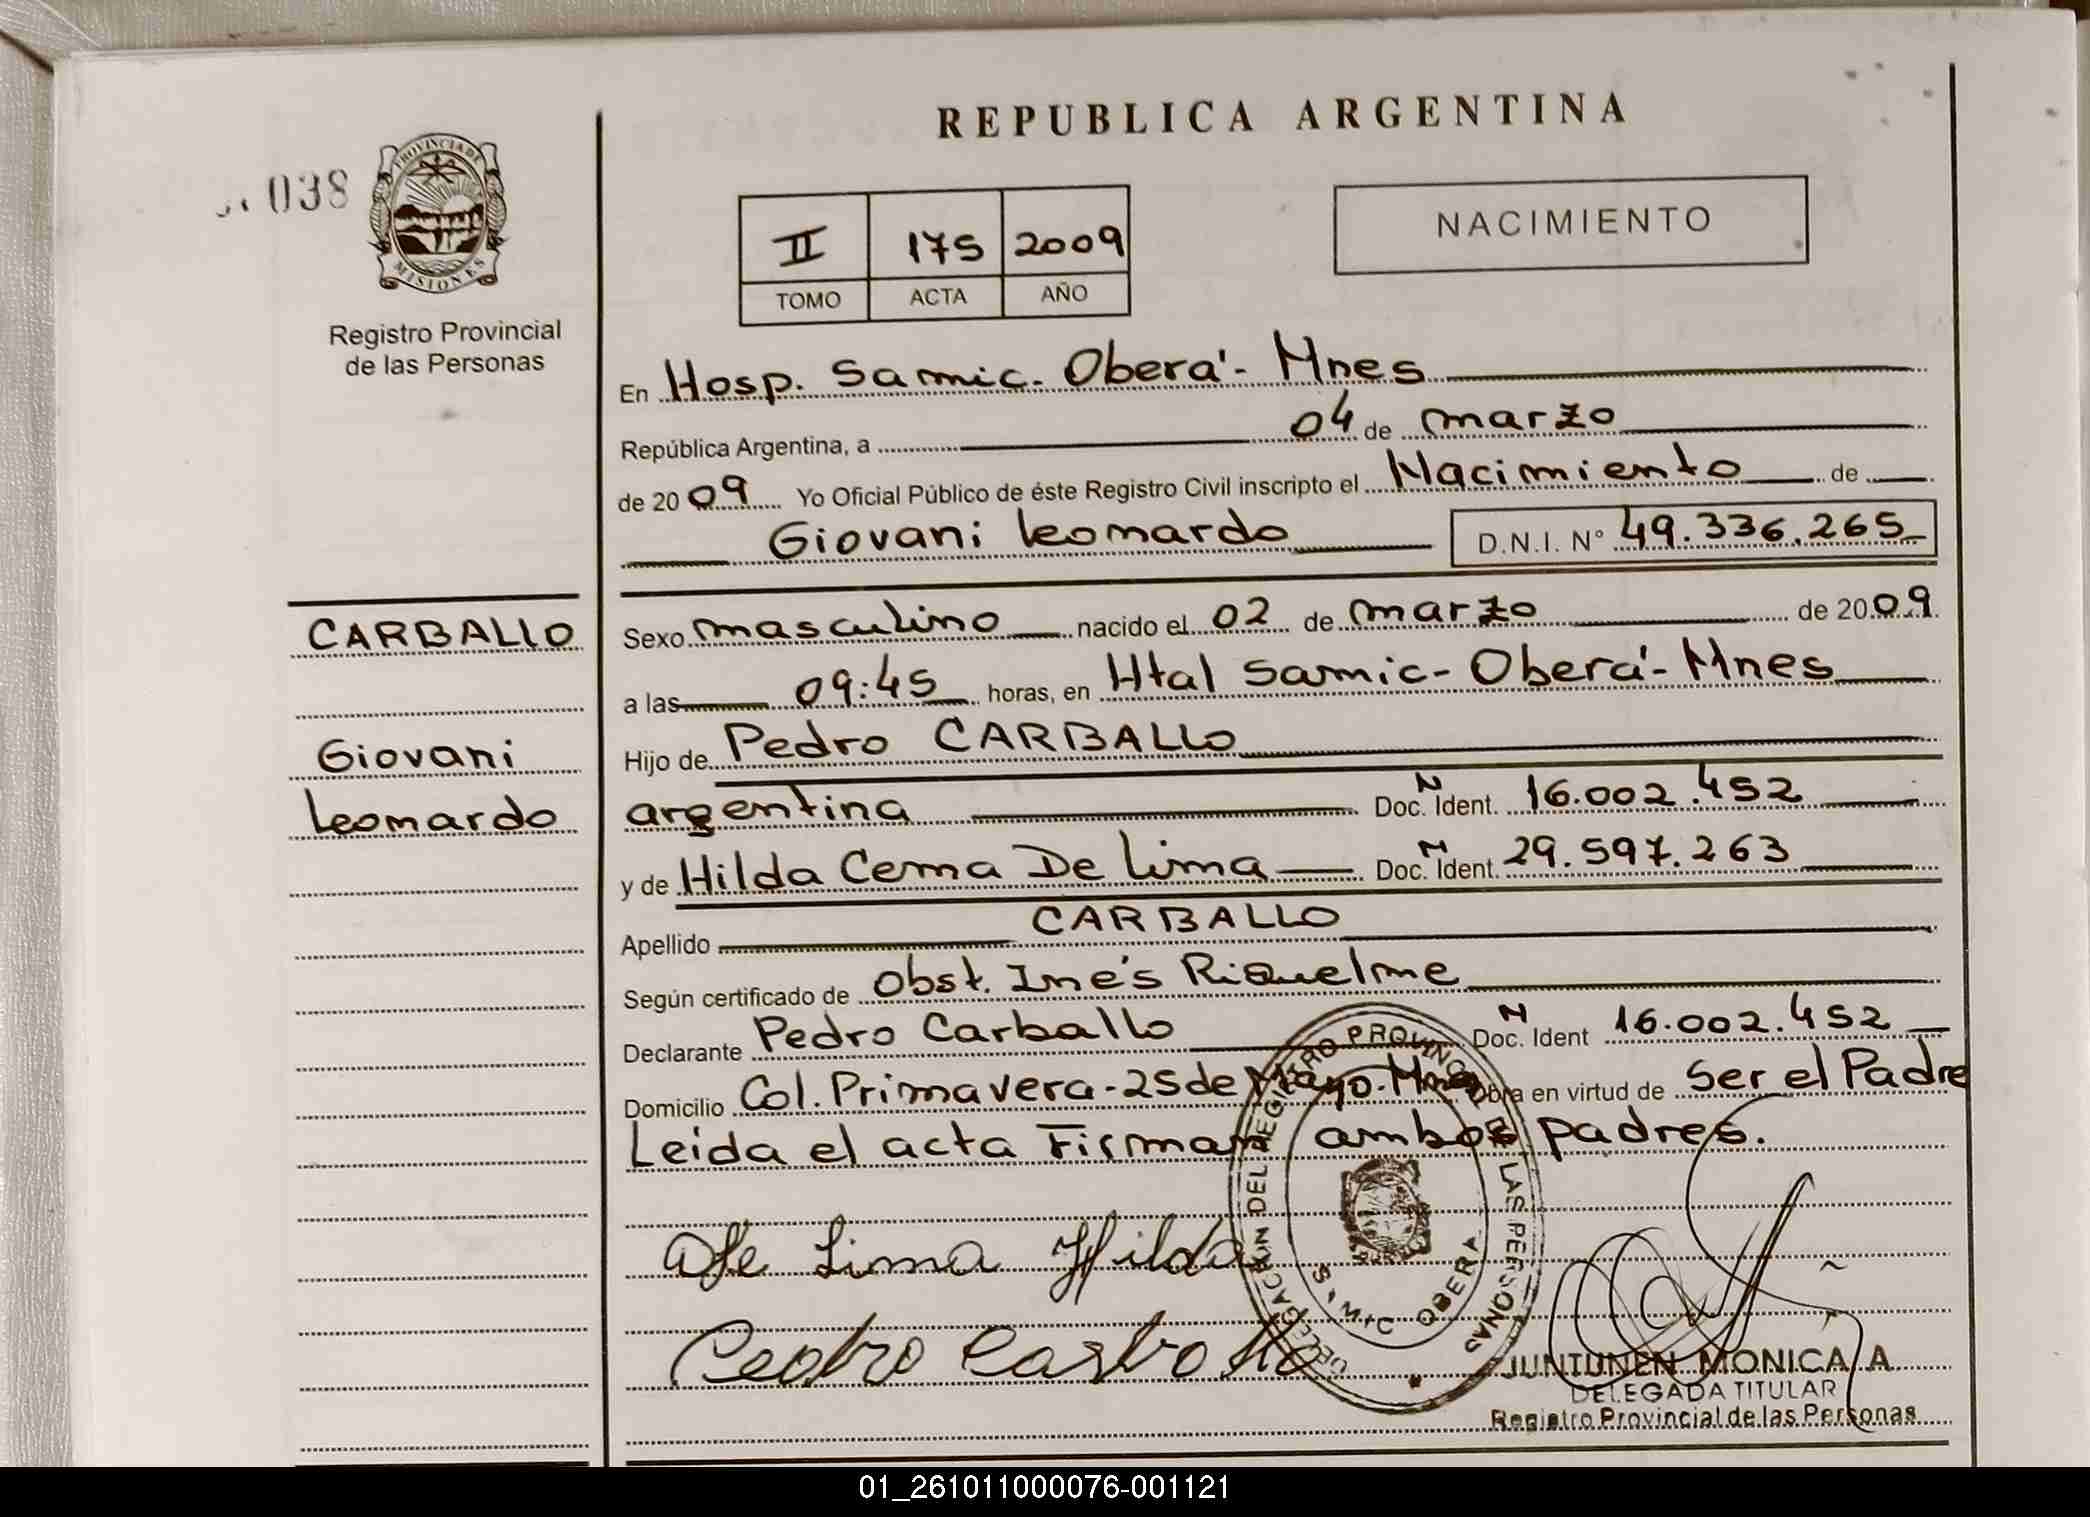 REPUBLICA ARGENTINA
038
PROVINCIA DE
MISIONES
Registro Provincial
de las Personas
II 175 2009
TOMO ACTA AÑO
NACIMIENTO
En Hosp. Samic. Oberá - Mnes
República Argentina, a 04 de marzo
de 2009 Yo Oficial Público de éste Registro Civil inscripto el Nacimiento de
Giovani Leonardo D.N.I. N° 49.336.265
CARBALLO
Giovani
Leonardo
Sexo masculino nacido el 02 de marzo de 2009
a las 09:45 horas, en Htal Samic - Oberá - Mnes
Hijo de Pedro CARBALLO
argentina Doc. N Ident. 16.002.452
y de Hilda Cema De Lima Doc. N Ident. 29.597.263
Apellido CARBALLO
Según certificado de Obst. Inés Riquelme
Declarante Pedro Carballo Doc. N Ident 16.002.452
Domicilio Col. Primavera - 25 de Mayo. Mnes Obra en virtud de Ser el Padre
Leida el acta Firman ambos padres.
De Lima Hilda
Pedro Carballo
DELEGACION DEL REGISTRO PROVINCIAL DE LAS PERSONAS
SAMIC OBERA
JUNTUNEN MONICA A
DELEGADA TITULAR
Registro Provincial de las Personas
01_261011000076-001121